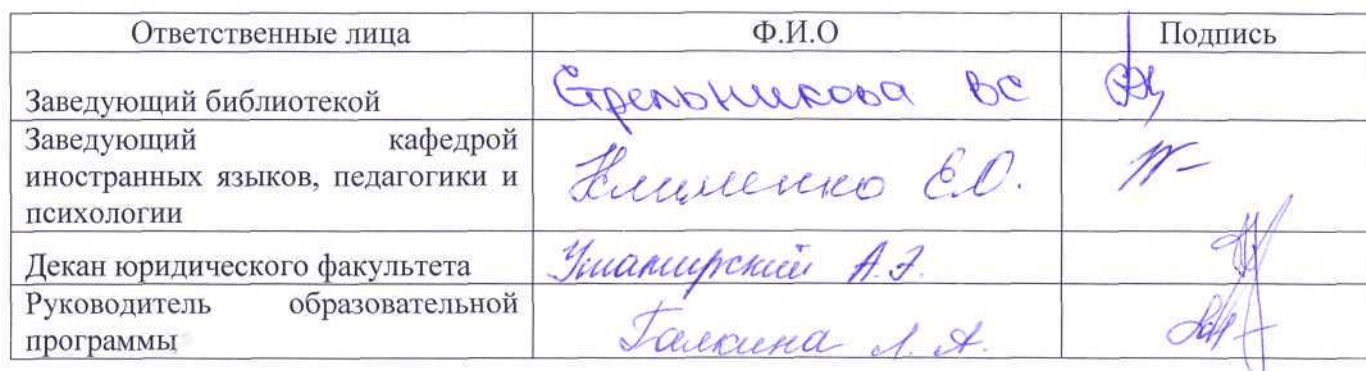 Ответственные лица Ф.И.О Подпись
Заведующий библиотекой Стрельникова ВС
Заведующий кафедрой
иностранных языков, педагогики и Клименко Е.О.
психологии
Декан юридического факультета А.Э.
Руководитель образовательной
программы Галкина Л.А.